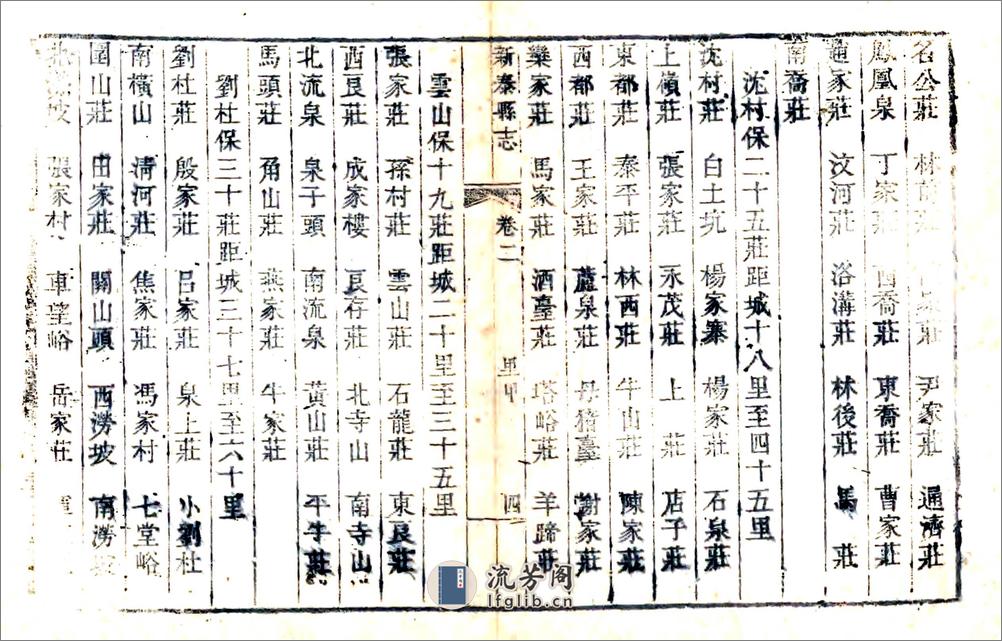 名公莊 林 莊 家莊 尹家莊 通濟莊
鳳凰泉 丁家莊 西喬莊 東喬莊 曹家莊
家莊 汶河莊 洛溝莊 林後莊 馬 莊
南喬莊
沈村保二十五莊距城十八里至四十五里
沈村莊 白土坑 楊家寨 楊家莊 石泉莊
上嶺莊 張家莊 永茂莊 上 莊 店子莊
東都莊 秦平莊 林西莊 牛山莊 陳家莊
西都莊 王家莊 蘆泉莊 丹豬臺 謝家莊
欒家莊 馬家莊 酒臺莊 塔峪莊 羊蹄莊
新泰縣志 卷二 里甲 四
雲山保十九莊距城二十里至三十五里
張家莊 孫村莊 雲山莊 石龍莊 東良莊
西良莊 成家樓 良存莊 北寺山 南寺山
北流泉 泉子頭 南流泉 黃山莊 平牛莊
馬頭莊 角山莊 燕家莊 牛家莊
劉杜保三十莊距城三十七里至六十里
劉杜莊 殷家莊 呂家莊 泉上莊 小劉杜
南橫山 清河莊 焦家莊 馮家村 七堂峪
圍山莊 田家莊 關山頭 西澇坡 南澇坡
北 坡 張家村 車望峪 岳家莊
流芳阁
lfglib.cn